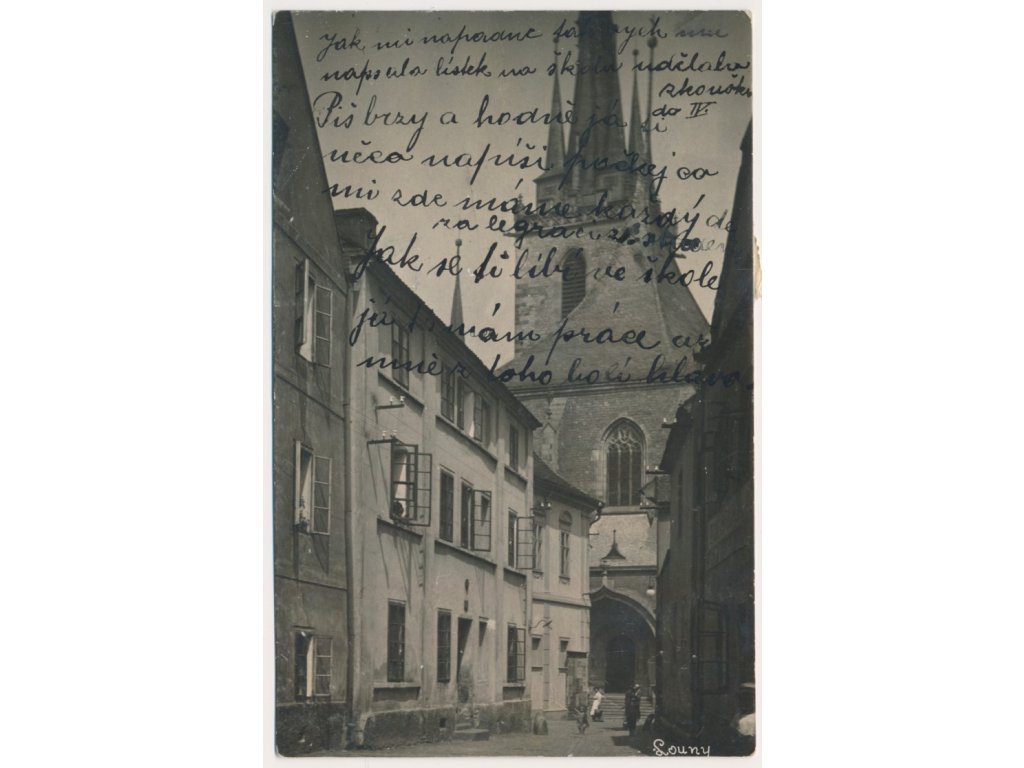 Jak mi naporanc mu
napsala lístek na školu udělala
zkoušku
do IV.
Piš brzy a hodně já si
něco napíši počkej co
mi zde máme každý de
za legraci ze
Jak se ti líbí ve škole
já mám práce až
mně z toho bolí hlava.
Louny